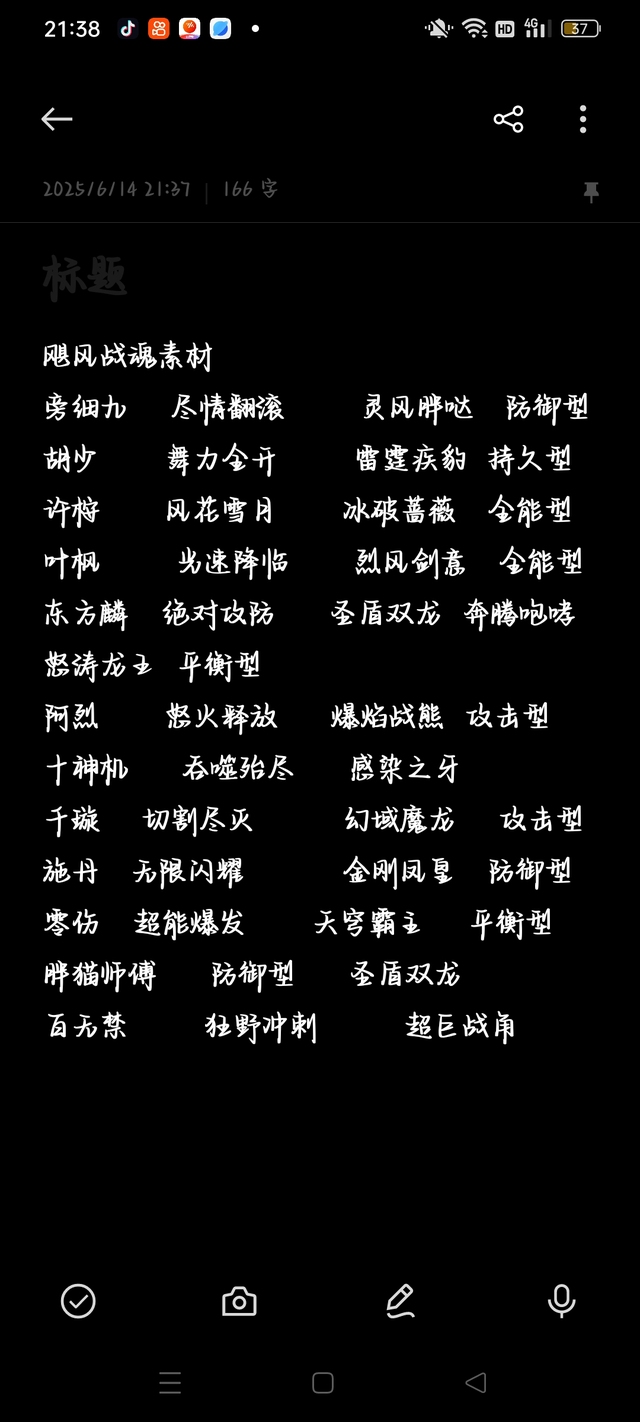 21:38 HD 4G 37
2025/6/14 21:37 | 166 字
标题
飓风战魂素材
旁细九 尽情翻滚 灵风胖哒 防御型
胡少 舞力全开 雷霆疾豹 持久型
许梈 风花雪月 冰破蔷薇 全能型
叶枫 光速降临 烈风剑意 全能型
东方麟 绝对攻防 圣盾双龙 奔腾咆哮
怒涛龙王 平衡型
阿烈 怒火释放 爆焰战熊 攻击型
十神机 吞噬殆尽 感染之牙
千璇 切割尽灭 幻域魔龙 攻击型
施丹 无限闪耀 金刚凤皇 防御型
零伤 超能爆发 天穹霸主 平衡型
胖猫师傅 防御型 圣盾双龙
百无禁 狂野冲刺 超巨战角